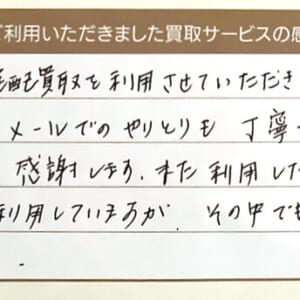 ご利用いただきました買取サービスの感
宅配買取を利用させていただき
メールでのやりとりも 丁寧
感謝します。また利用した
利用していますが、その中でも